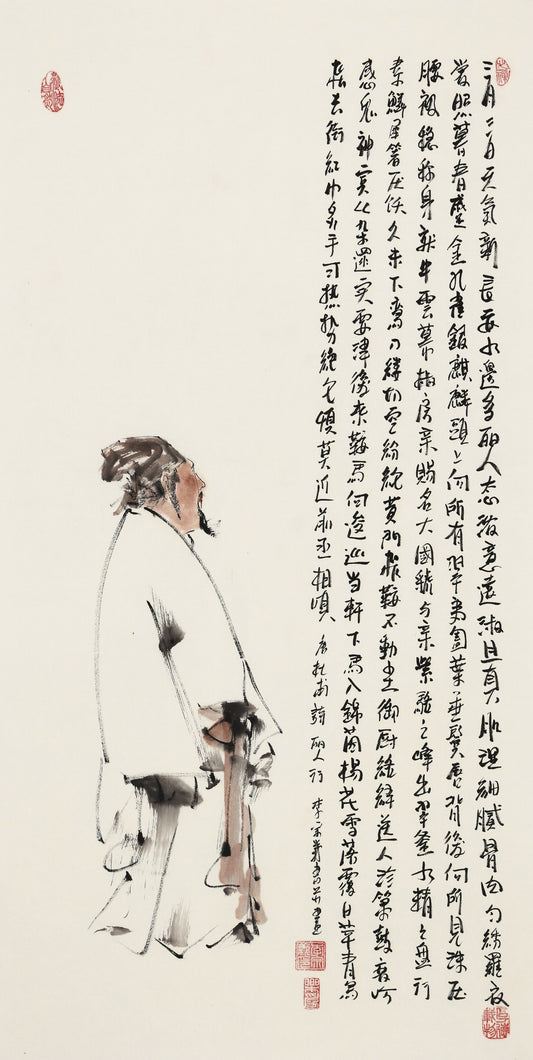 三月三日天氣新長安水邊多丽人态濃意遠淑且真肌理細膩骨肉勻綉羅衣
裳照暮春蹙金孔雀銀麒麟頭上何所有翠微㔩葉垂鬢唇背後何所見珠压
腰衱穩稱身就中雲幕椒房親賜名大國虢與秦紫駝之峰出翠釜水精之盤行
素鱗犀箸厌飫久未下鸞刀縷切空紛綸黄門飛鞚不動塵御厨絡繹送八珍簫鼓哀吟
感鬼神賓從雜遝實要津後來鞍馬何逡巡當軒下馬入錦茵楊花雪落覆白蘋青鳥
飛去銜紅巾炙手可熱势絕倫慎莫近前丞相嗔 唐杜甫詩丽人行 李